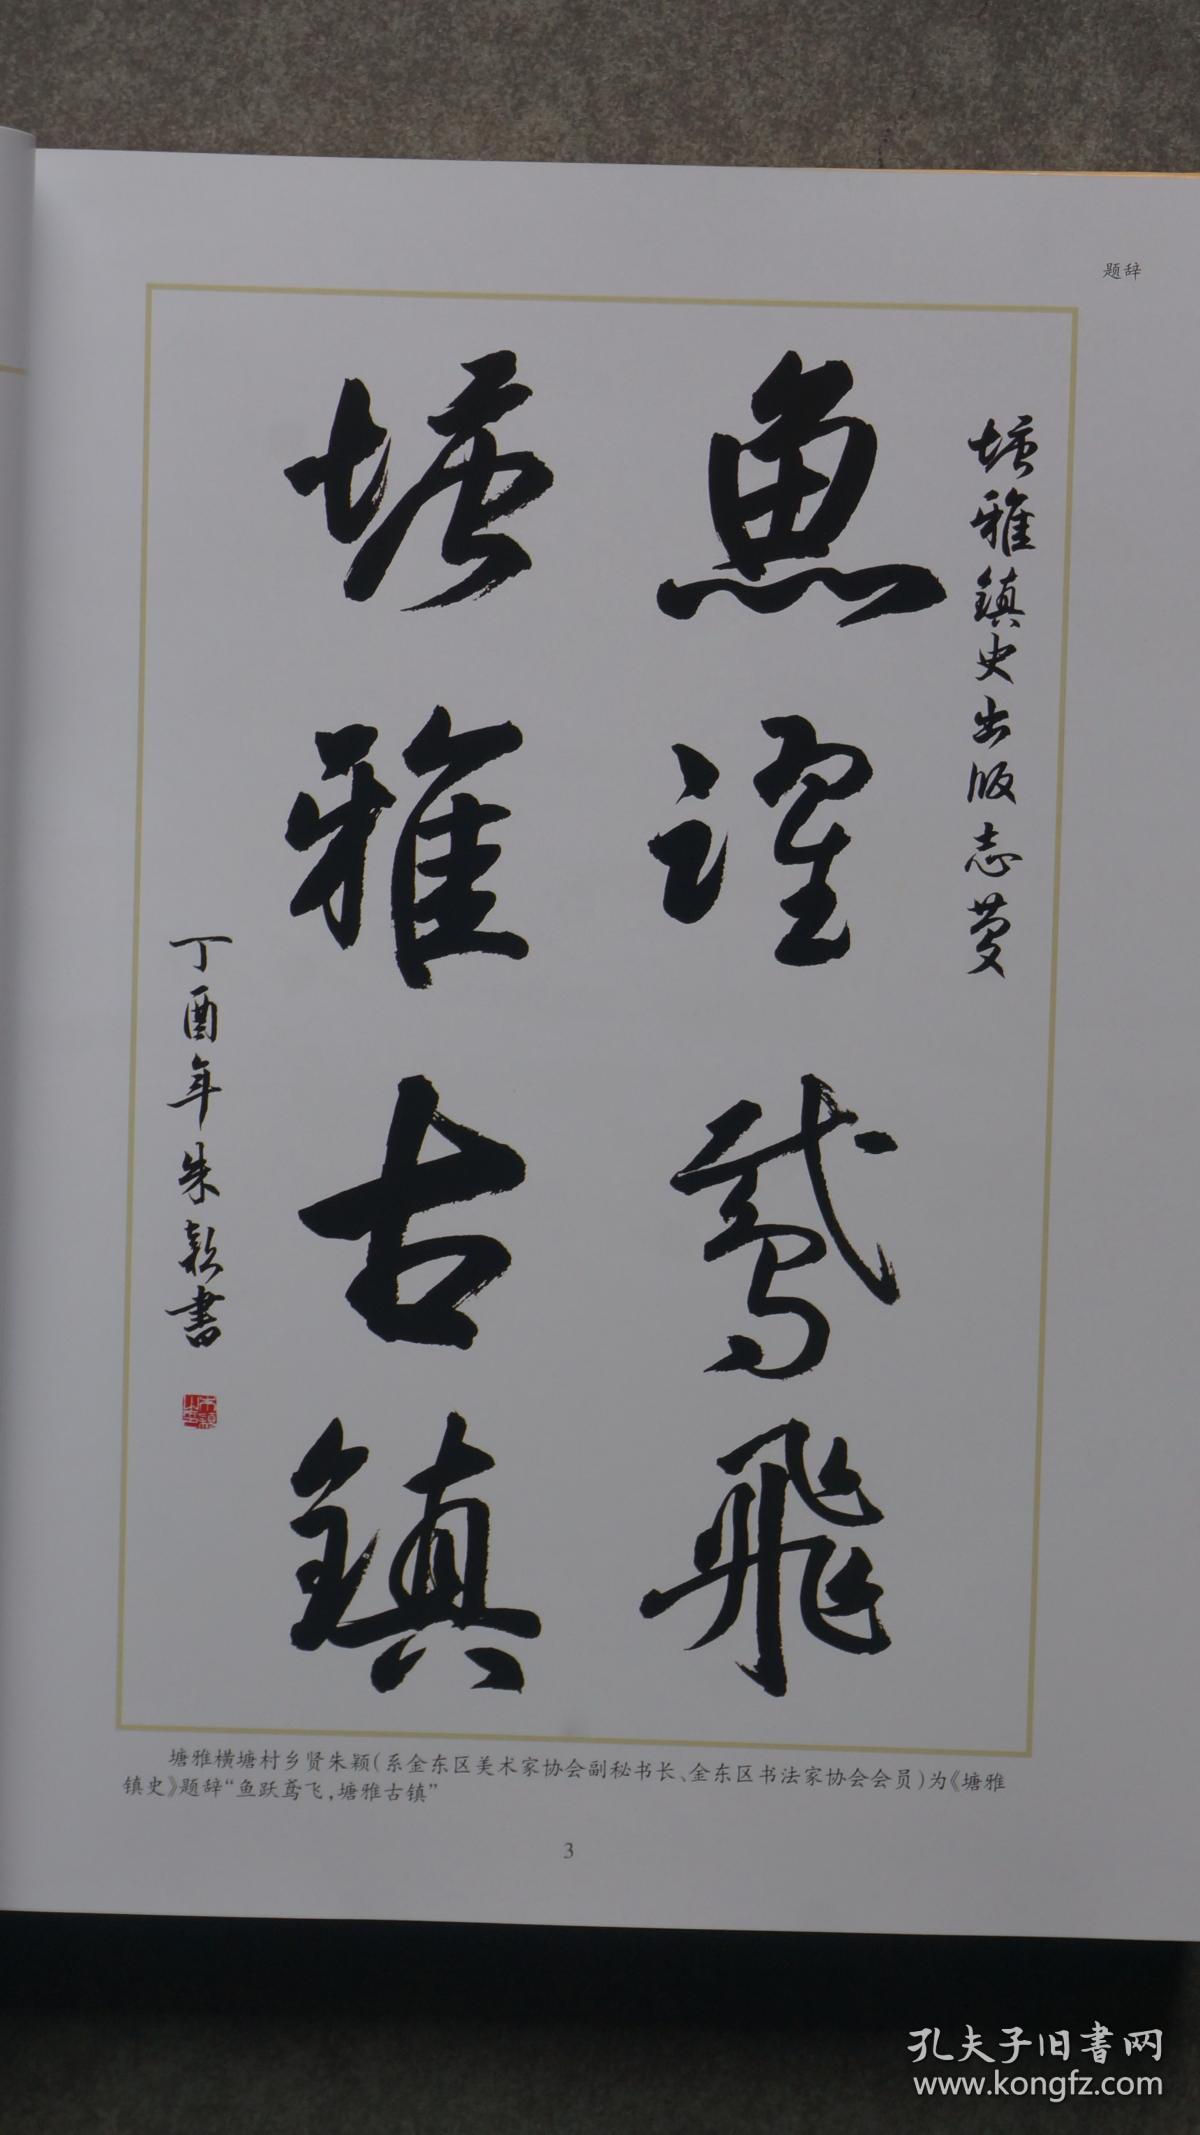 题辞
塘雅镇史出版志慶
魚躍鳶飛
塘雅古鎮
丁酉年朱穎書
塘雅横塘村乡贤朱颖(系金东区美术家协会副秘书长、金东区书法家协会会员)为《塘雅
镇史》题辞“鱼跃鸢飞,塘雅古镇”
3
孔夫子旧书网
www.kongfz.com